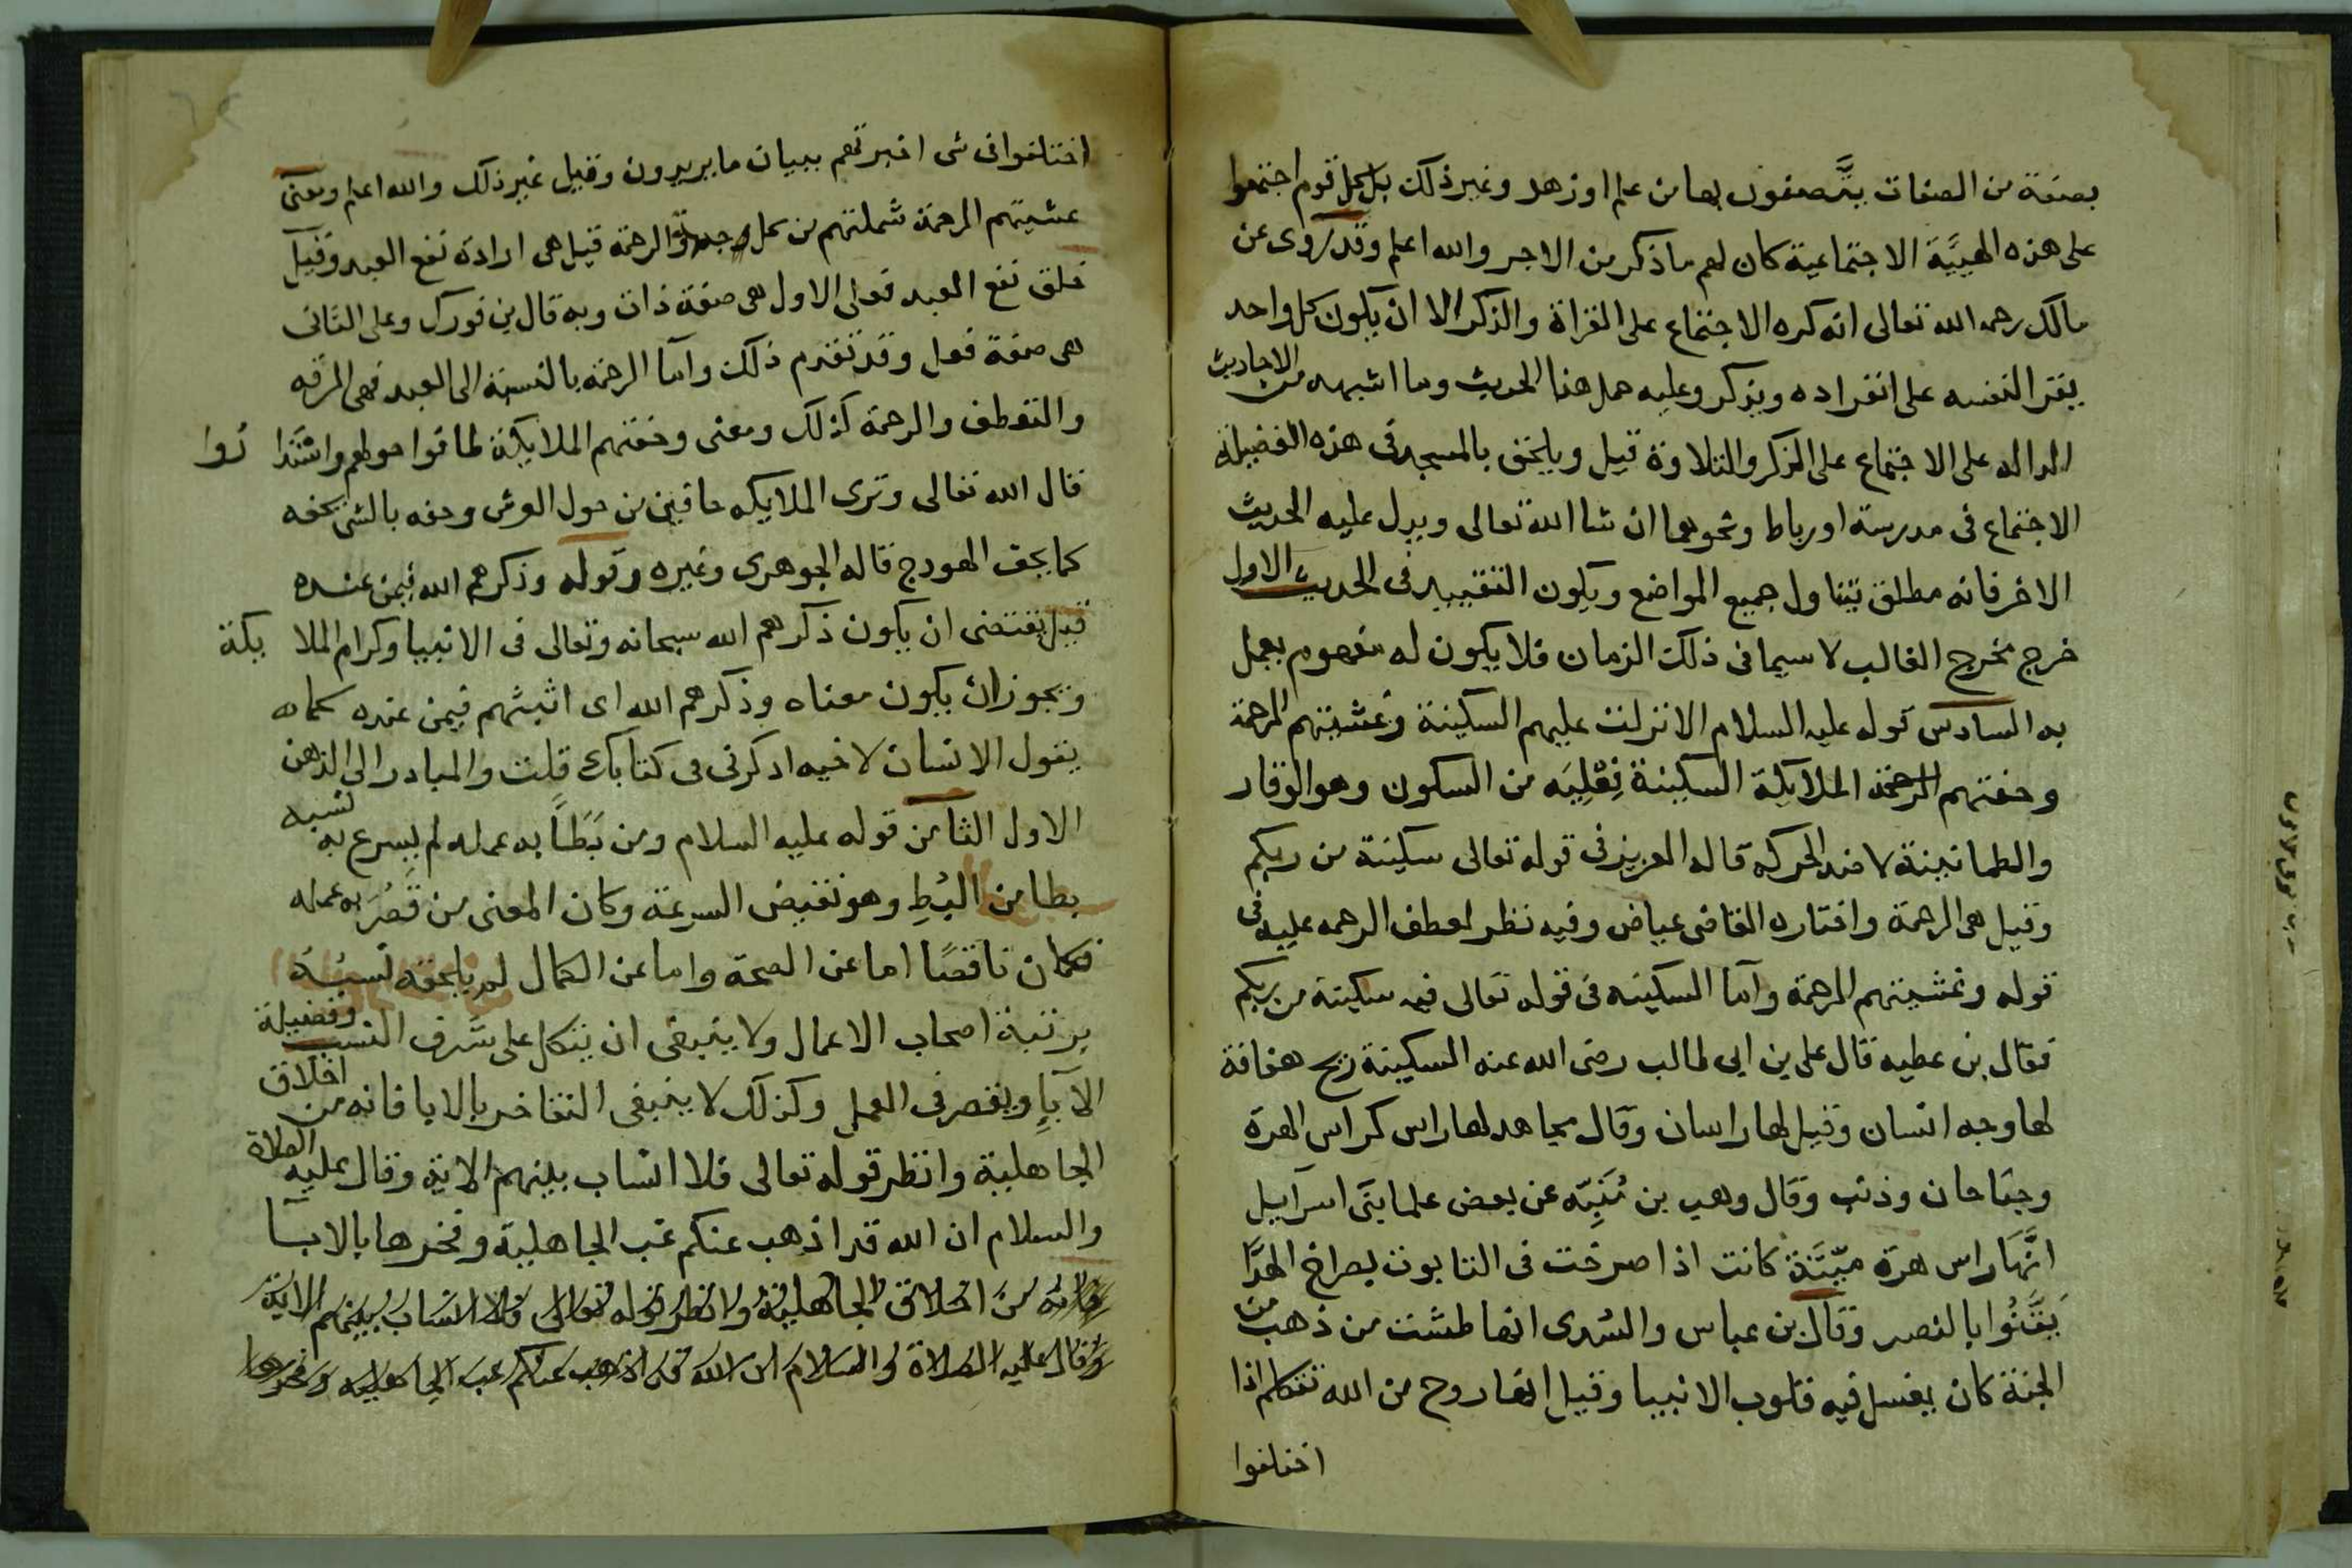 بصفة من الصفات يتَّصفون بها من علم او زهد وغير ذلك بل كل قوم اجتمعوا
على هذه الهيَّية الاجتماعية كان لهم ما ذكر من الاجر والله اعلم وقد روى عن
مالك رحمه الله تعالى انه كره الاجتماع على القراة والذكر الا ان يكون كل واحد
يقرا لنفسه على انفراده ويذكر وعليه حمل هذا الحديث وما اشبهه من الاحاديث
الداله على الاجتماع على الذكر والتلاوة قيل ويلحق بالمسجد فى هذه الفضيلة
الاجتماع فى مدرسة او رباط ونحوهما ان شا الله تعالى ويدل عليه الحديث
الاخر فانه مطلق يتناول جميع المواضع ويكون التقييد فى الحديث الاول
خرج مخرج الغالب لا سيما فى ذلك الزمان فلا يكون له مفهوم يعمل
به السادس قوله عليه السلام الا نزلت عليهم السكينة وغشيتهم الرحمة
وحفتهم الرحمة الملايكة السكينة فِعْلِيَه من السكون وهو الوقار
والطمانينة لا ضد الحركه قاله العزيزى فى قوله تعالى سكينة من ربكم
وقيل هى الرحمة واختاره القاضى عياض وفيه نظر لعطف الرحمه عليه فى
قوله وغشيتهم الرحمة واما السكينه فى قوله تعالى فيه سكينة من ربكم
فقال بن عطيه قال على بن ابى طالب رضى الله عنه السكينة ريح هفافة
لها وجه انسان وقيل لها راسان وقال مجاهد لها راس كراس الهرة
وجناحان وذنب وقال وهب بن مُنَبِّه عن بعض علما بنى اسرآييل
انَّها راس هرة ميّتَة كانت اذا صرخت فى التابوت بصراخ الهرّ
يَقَنُوا بالنصر وقال بن عباس والسدى انها طشت من ذهب من
الجنة كان يغسل فيه قلوب الانبيا وقيل انها روح من الله تتكلم اذا
اختلفوا
اختلفوا فى شى اخبرتهم ببيان ما يريدون وقيل غير ذلك والله اعلم ومعنى
غشيتهم الرحمة شملتهم من كل وجهة والرحمة قيل هى ارادة نفع العبد وقيل
خلق نفع العبد فعلى الاول هى صفة ذات وبه قال بن فورك وعلى الثانى
هى صفة فعل وقد تقدم ذلك واما الرحمة بالنسبة الى العبد فهى الرقه
والتعطف والرحمة كذلك ومعنى وحفتهم الملايكة طافوا حولهم واستدا روا
قال الله تعالى وترى الملايكه حافين من حول العرش وحفه بالشى يحفه
كما يحف الهودج قاله الجوهرى وغيره وقوله وذكرهم الله فيمن عنده
قيل يقتضى ان يكون ذكرهم الله سبحانه وتعالى فى الانبيا وكرام الملا يكة
ويجوز ان يكون معناه وذكرهم الله اى اثبتهم فيمن عنده كما
يقول الانسان لاخيه اذكرنى فى كتابك قلت والمبادر الى الذهن
الاول الثامن قوله عليه السلام ومن بَطَّأ به عمله لم يسرع به نسبه
بطا من البُطِ وهو نقيض السرعة وكان المعنى من قَصُرَ به عمله
فكان ناقصًا اما عن الصحة واما عن الكمال لم يلحقه نسبُهُ
برتبة اصحاب الاعمال ولا ينبغى ان يتكل على شرف النسب وفضيلة
الآباءِ ويقصر فى العمل وكذلك لا ينبغى التفاخر بالابا فانه من اخلاق
الجاهلية وانظر قوله تعالى فلا انساب بينهم الاية وقال عليه الصلاة
والسلام ان الله قد اذهب عنكم عب الجاهلية وفخرها بالابآ
فانه من اخلاق الجاهلية وانظر قوله تعالى فلا انساب بينهم الاية
وقال عليه الصلاة والسلام ان الله قد اذهب عنكم عب الجاهليه وفخرها